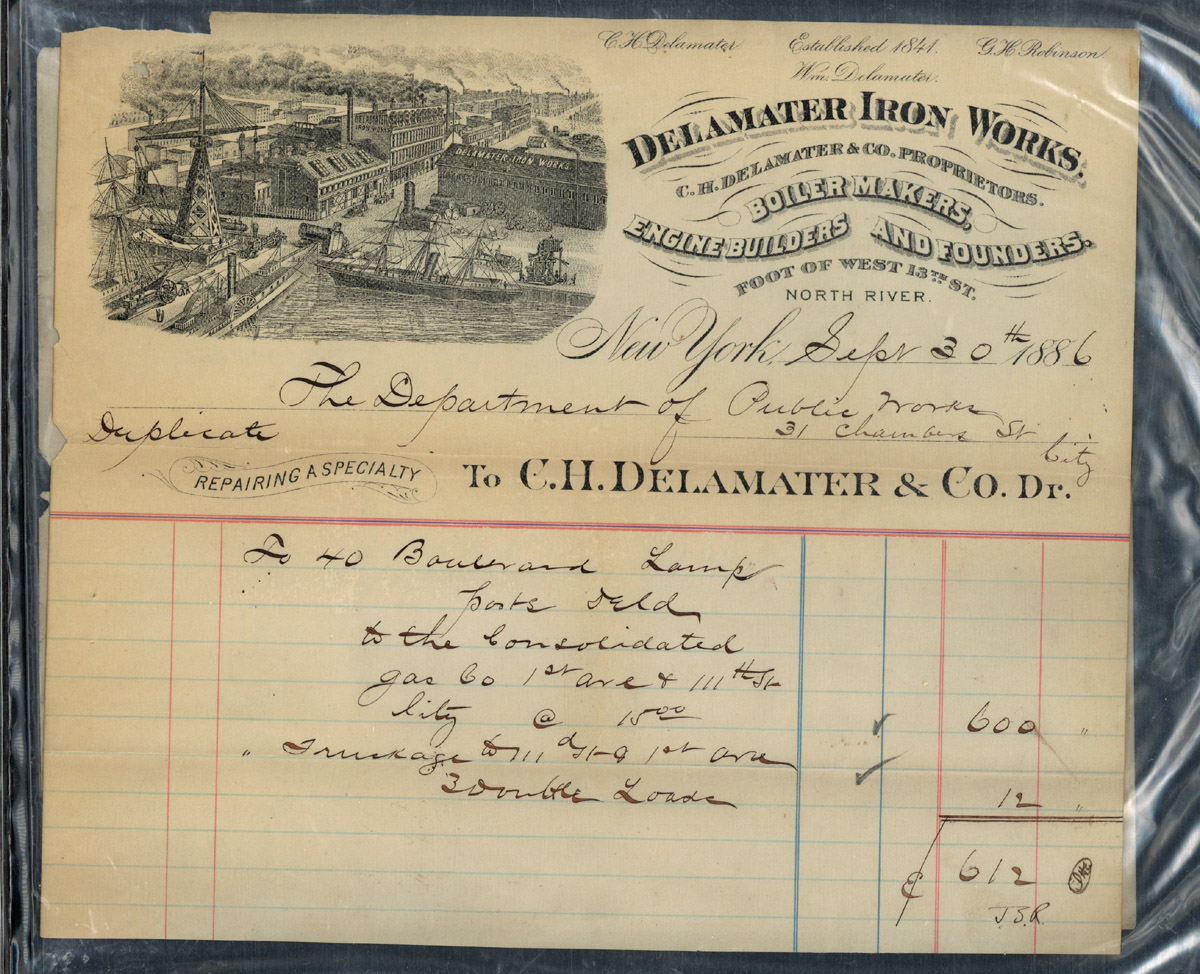 C.H. Delamater Established 1841. G.H. Robinson
Wm. Delamater.
DELAMATER IRON WORKS.
DELAMATER IRON WORKS,
C.H. DELAMATER & CO. PROPRIETORS.
BOILER MAKERS,
ENGINE BUILDERS AND FOUNDERS.
FOOT OF WEST 13TH ST.
NORTH RIVER.
New York, Sept 30th 1886
The Department of Public Works
Duplicate 31 Chambers St
City
REPAIRING A SPECIALTY To C.H. DELAMATER & Co. Dr.
To 40 Boulevard Lamp
posts Deld
to the Consolidated
gas Co 1st ave & 111th St
City @ 15 00 600 "
" Truckage to 111d St & 1st Ave
3 Double Loads 12 "
612
J.S.R.